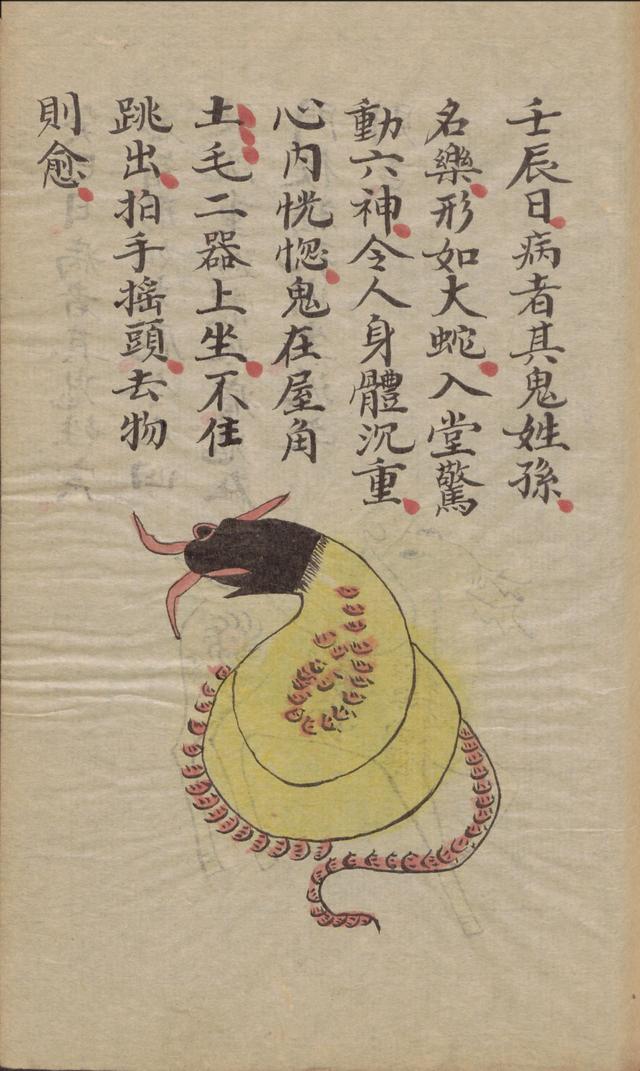 壬辰日病者其鬼姓孫
名樂形如大蛇入堂驚
動六神令人身體沉重
心內恍惚鬼在屋角
土毛二器上坐不住
跳出拍手搖頭去物
則愈